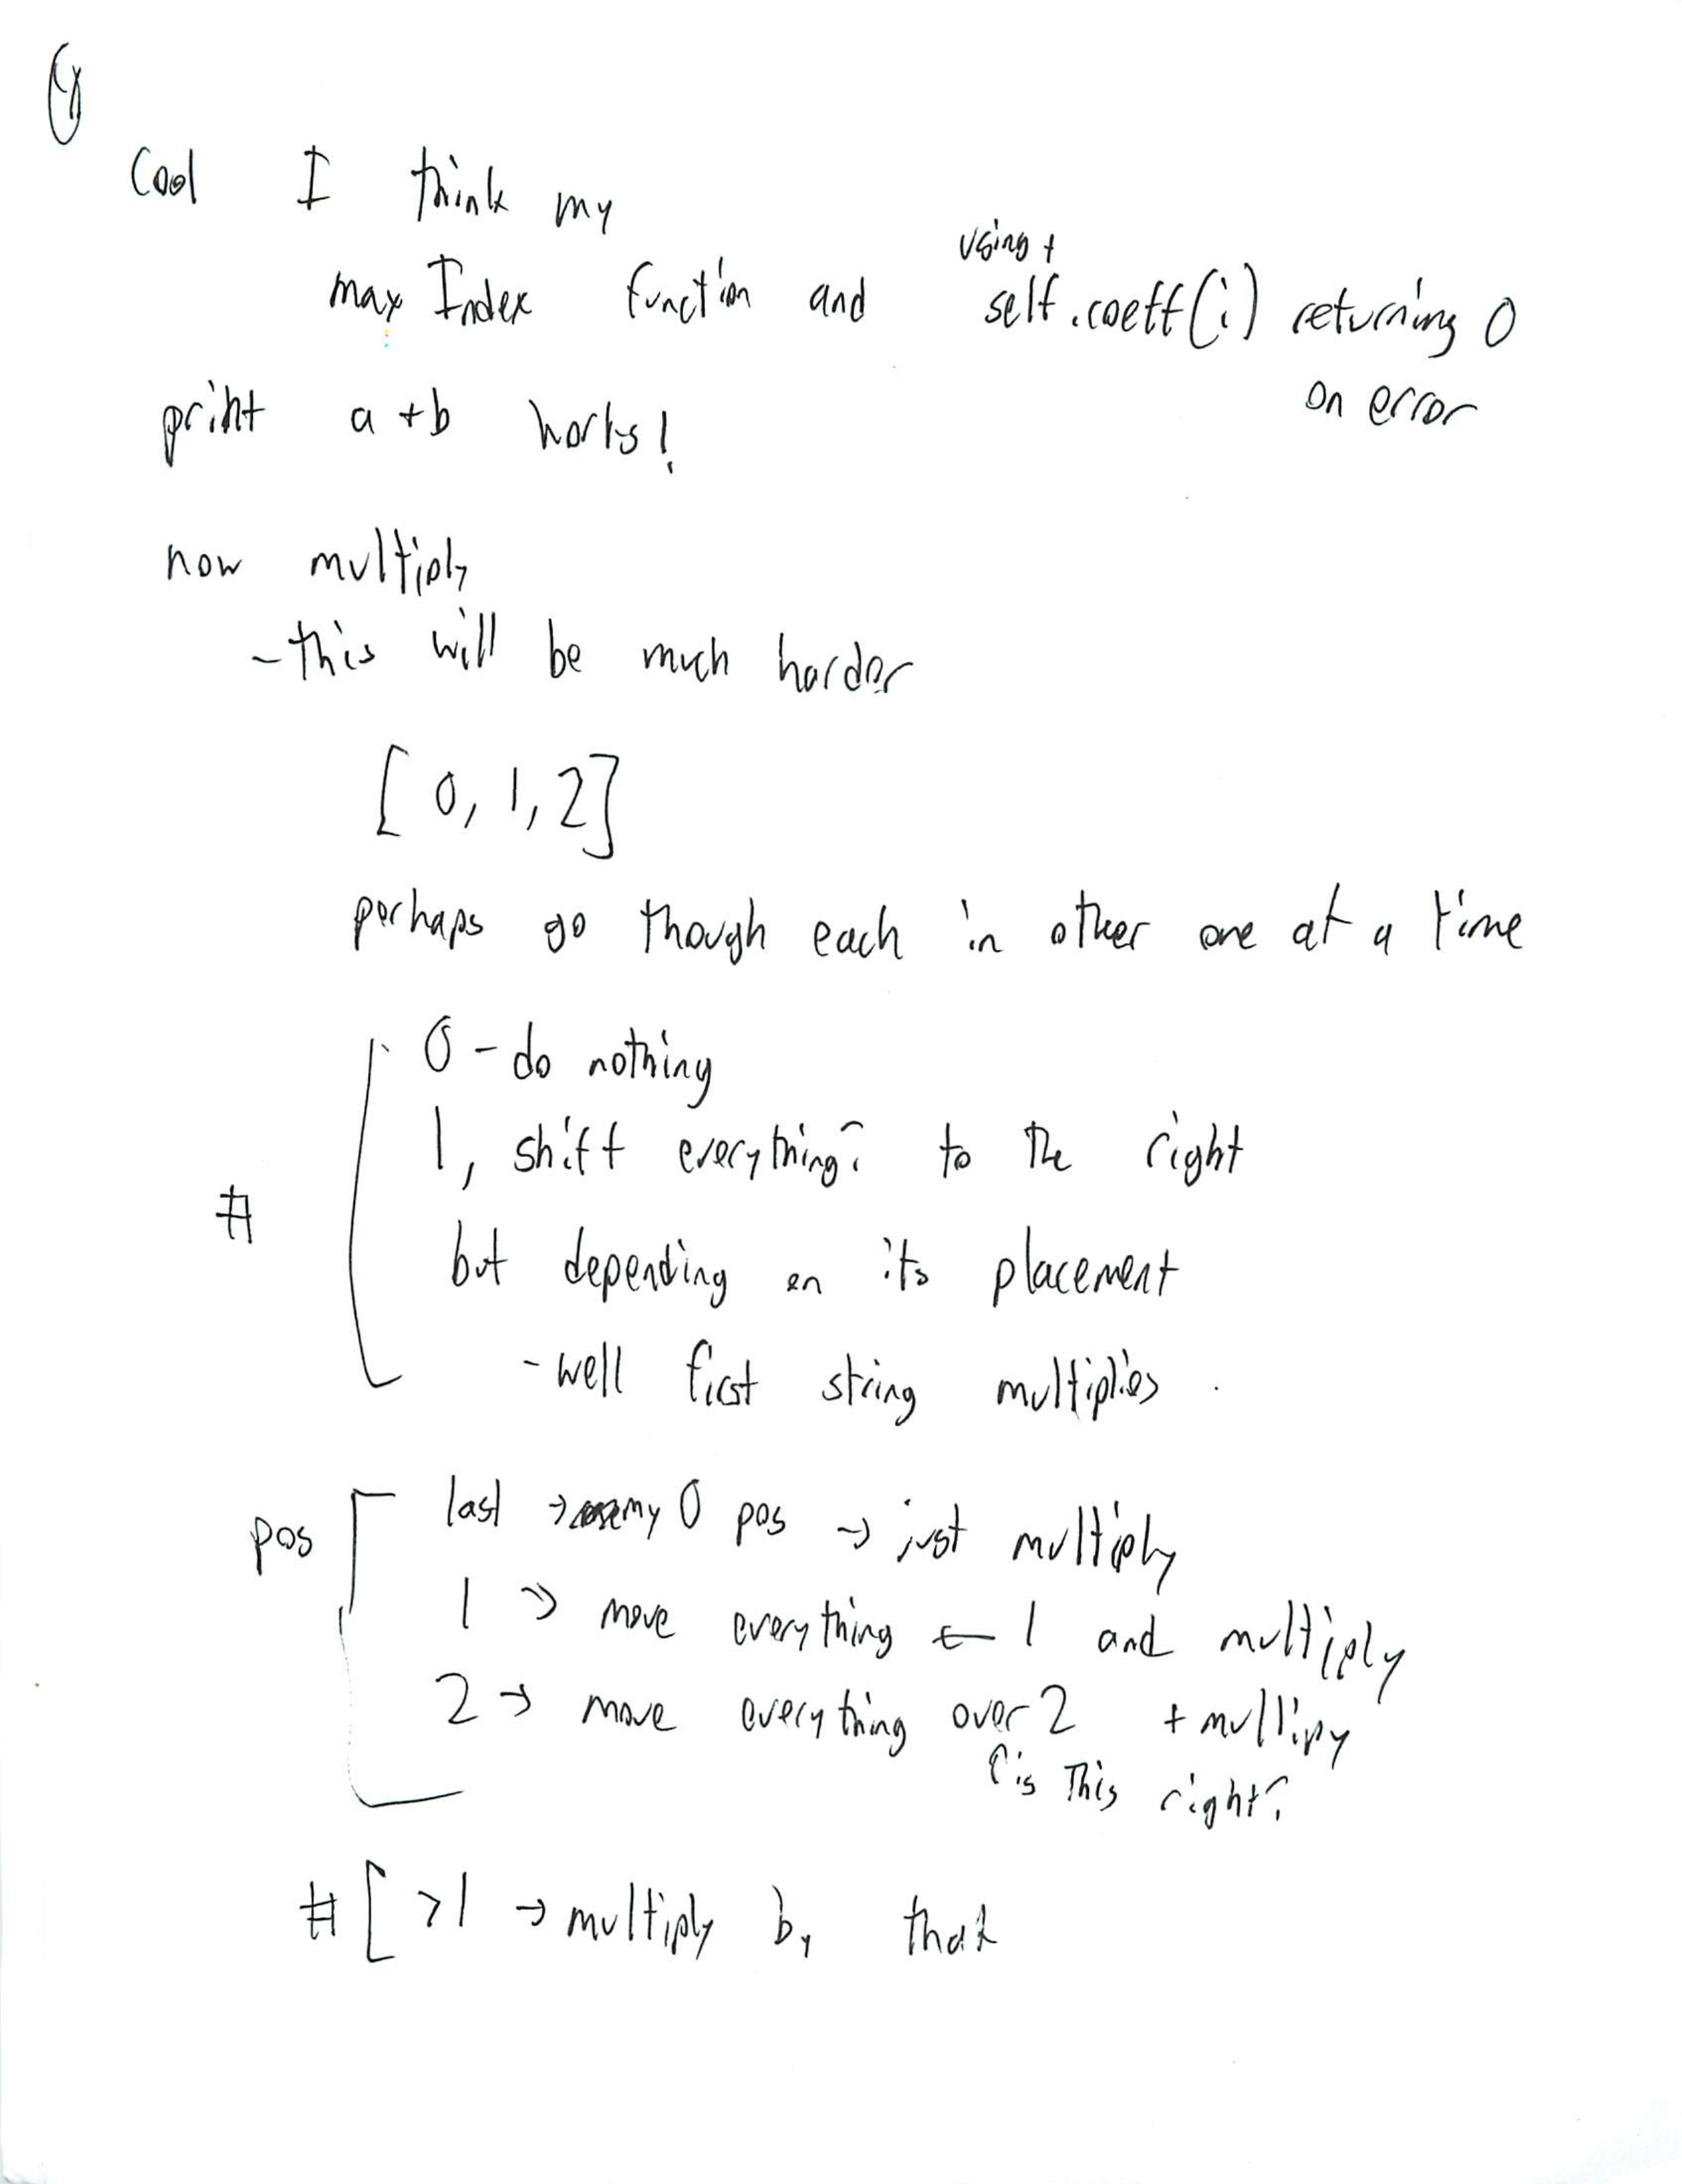 Cool I think my
using +
max Index function and self.coeff(i) returning 0
on error
print a+b works!
now multiply
- this will be much harder
[0, 1, 2]
perhaps go though each in other one at a time
0 - do nothing
1, shift everything? to the right
#
but depending on its placement
- well first string multiplies
pos
last → my 0 pos → just multiply
1 → move everything ← 1 and multiply
2 → move everything over 2 + multipy
is this right?
# [ >1 → multiply by that